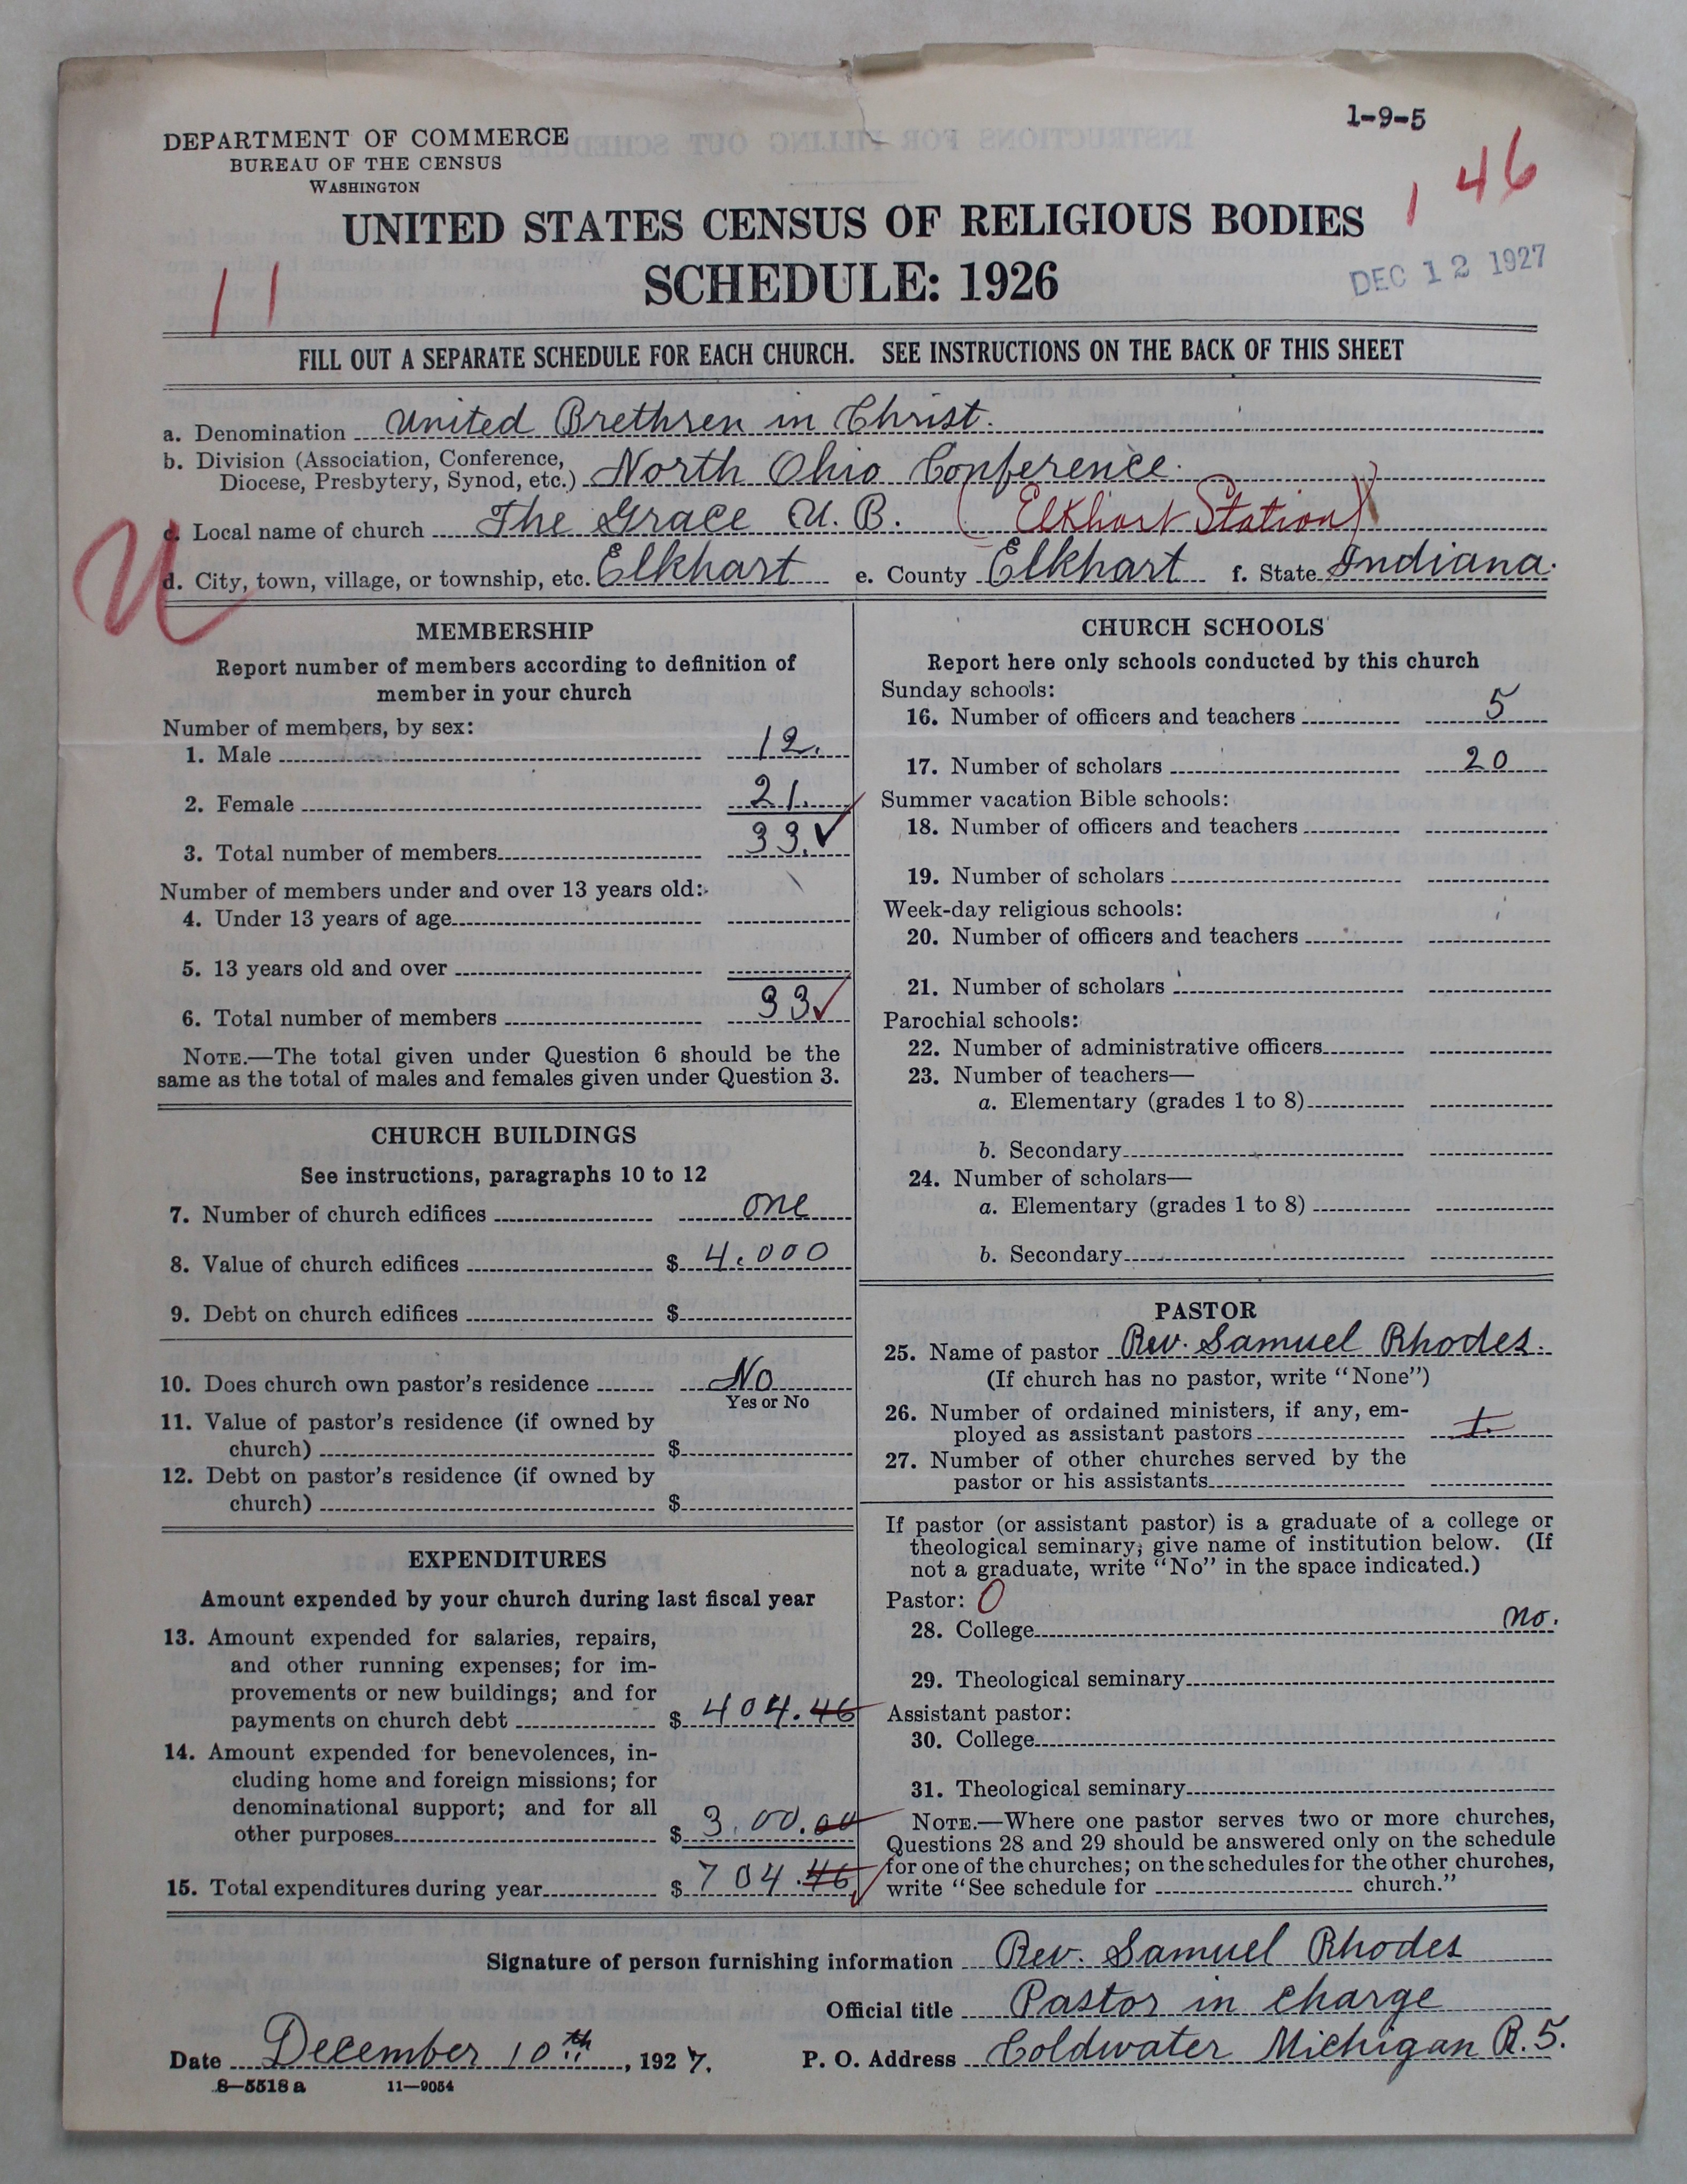 1-9-5
DEPARTMENT OF COMMERCE
BUREAU OF THE CENSUS
WASHINGTON
1 46
UNITED STATES CENSUS OF RELIGIOUS BODIES
SCHEDULE: 1926
11
DEC 12 1927
FILL OUT A SEPARATE SCHEDULE FOR EACH CHURCH. SEE INSTRUCTIONS ON THE BACK OF THIS SHEET
a. Denomination United Brethren in Christ.
b. Division (Association, Conference,
Diocese, Presbytery, Synod, etc.) North Ohio Conference.
c. Local name of church The Grace U. B. (Elkhart Station)
U
d. City, town, village, or township, etc. Elkhart e. County Elkhart f. State Indiana.
MEMBERSHIP
Report number of members according to definition of
member in your church
Number of members, by sex:
1. Male 12.
2. Female 21.
3. Total number of members 33. ✓
Number of members under and over 13 years old:
4. Under 13 years of age
5. 13 years old and over
6. Total number of members 33 ✓
NOTE.—The total given under Question 6 should be the
same as the total of males and females given under Question 3.
CHURCH BUILDINGS
See instructions, paragraphs 10 to 12
7. Number of church edifices one
8. Value of church edifices $ 4.000
9. Debt on church edifices $
10. Does church own pastor's residence No
Yes or No
11. Value of pastor's residence (if owned by
church) $
12. Debt on pastor's residence (if owned by
church) $
EXPENDITURES
Amount expended by your church during last fiscal year
13. Amount expended for salaries, repairs,
and other running expenses; for im-
provements or new buildings; and for
payments on church debt $ 404.46
14. Amount expended for benevolences, in-
cluding home and foreign missions; for
denominational support; and for all
other purposes $ 3.00.00
15. Total expenditures during year $ 704.46 ✓
CHURCH SCHOOLS
Report here only schools conducted by this church
Sunday schools:
16. Number of officers and teachers 5
17. Number of scholars 20
Summer vacation Bible schools:
18. Number of officers and teachers
19. Number of scholars
Week-day religious schools:
20. Number of officers and teachers
21. Number of scholars
Parochial schools:
22. Number of administrative officers
23. Number of teachers—
a. Elementary (grades 1 to 8)
b. Secondary
24. Number of scholars—
a. Elementary (grades 1 to 8)
b. Secondary
PASTOR
25. Name of pastor Rev. Samuel Rhodes.
(If church has no pastor, write "None")
26. Number of ordained ministers, if any, em-
ployed as assistant pastors 1.
27. Number of other churches served by the
pastor or his assistants
If pastor (or assistant pastor) is a graduate of a college or
theological seminary, give name of institution below. (If
not a graduate, write "No" in the space indicated.)
Pastor: 0
28. College no.
29. Theological seminary
Assistant pastor:
30. College
31. Theological seminary
NOTE.—Where one pastor serves two or more churches,
Questions 28 and 29 should be answered only on the schedule
for one of the churches; on the schedules for the other churches,
write "See schedule for church."
Signature of person furnishing information Rev. Samuel Rhodes
Official title Pastor in charge
Date December 10th, 1927. P. O. Address Coldwater Michigan R.5.
8—5518 a 11—9054